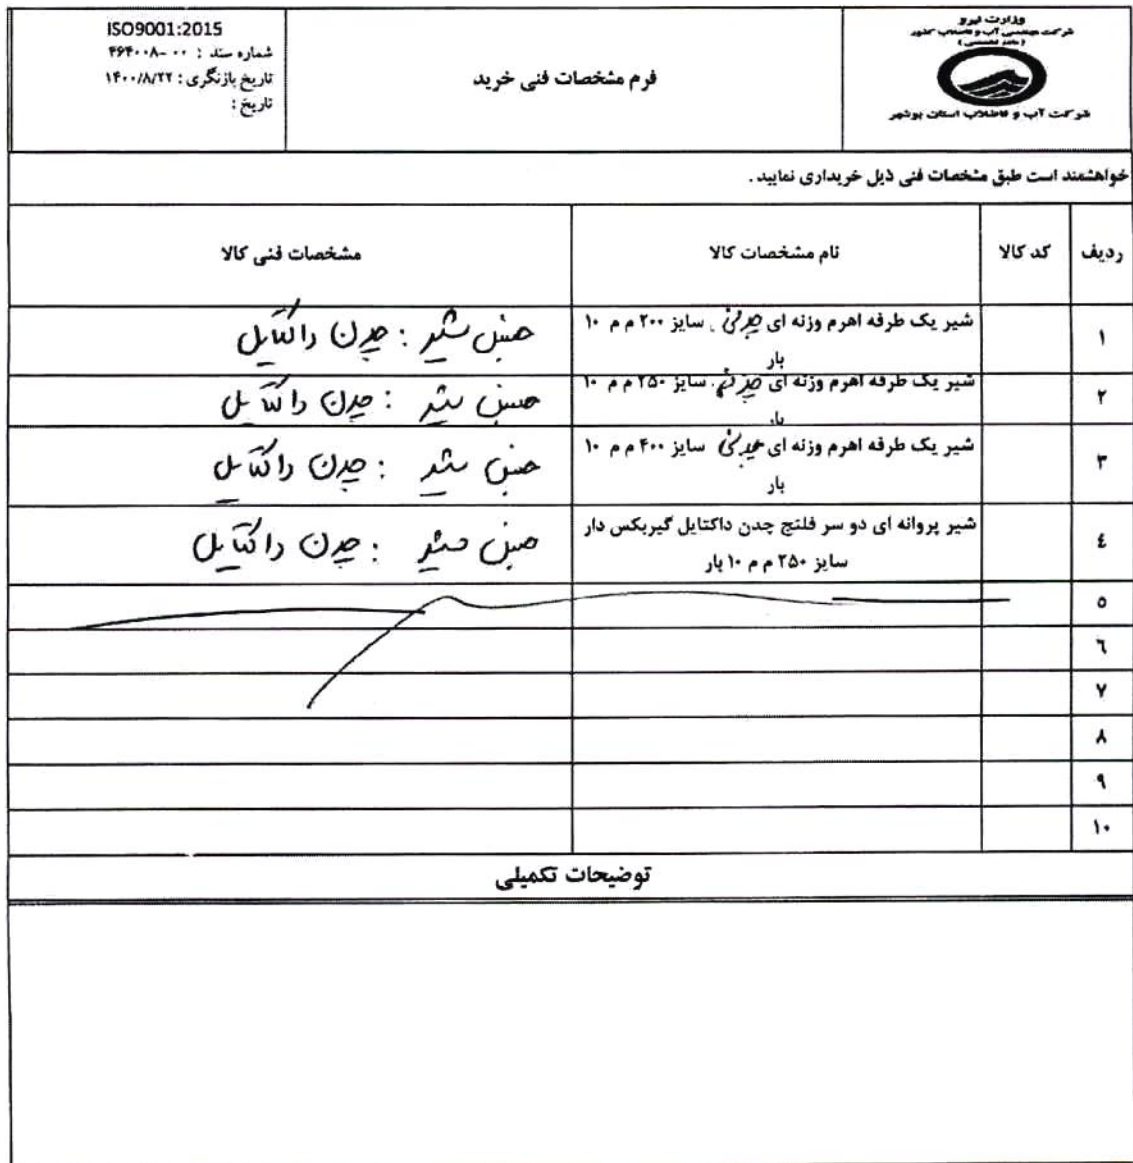 وزارت نیرو
شرکت مهندسی آب و فاضلاب کشور
( مادر تخصصی )
شرکت آب و فاضلاب استان بوشهر
فرم مشخصات فنی خرید
ISO9001:2015
شماره سند : ۰۰ -۴۶۴۰۰۸
تاریخ بازنگری : ۱۴۰۰/۸/۲۲
تاریخ :
خواهشمند است طبق مشخصات فنی ذیل خریداری نمایید .
ردیف کد کالا نام مشخصات کالا مشخصات فنی کالا
۱ شیر یک طرفه اهرم وزنه ای چدنی سایز ۲۰۰ م م ۱۰
بار
جنس شیر : چدن داکتایل
۲ شیر یک طرفه اهرم وزنه ای چدنی سایز ۲۵۰ م م ۱۰
بار
جنس شیر : چدن داکتایل
۳ شیر یک طرفه اهرم وزنه ای چدنی سایز ۴۰۰ م م ۱۰
بار
جنس شیر : چدن داکتایل
٤ شیر پروانه ای دو سر فلنج چدن داکتایل گیربکس دار
سایز ۲۵۰ م م ۱۰ بار
جنس شیر : چدن داکتایل
۵
٦
۷
۸
۹
۱۰
توضیحات تکمیلی